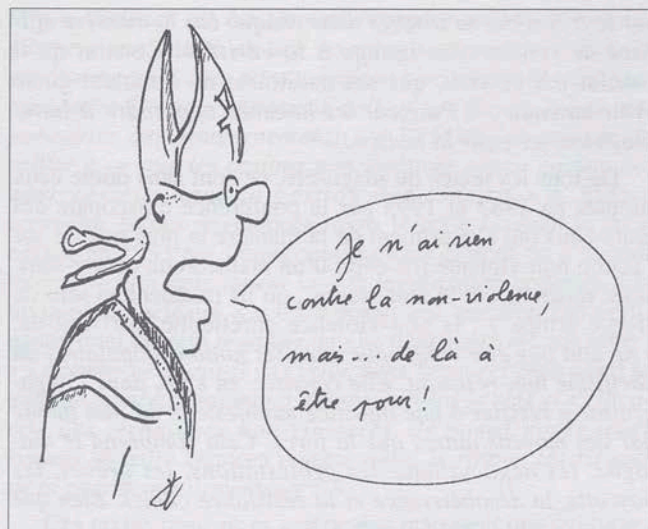 Je n'ai rien
contre la non-violence,
mais... de là à
être pour!